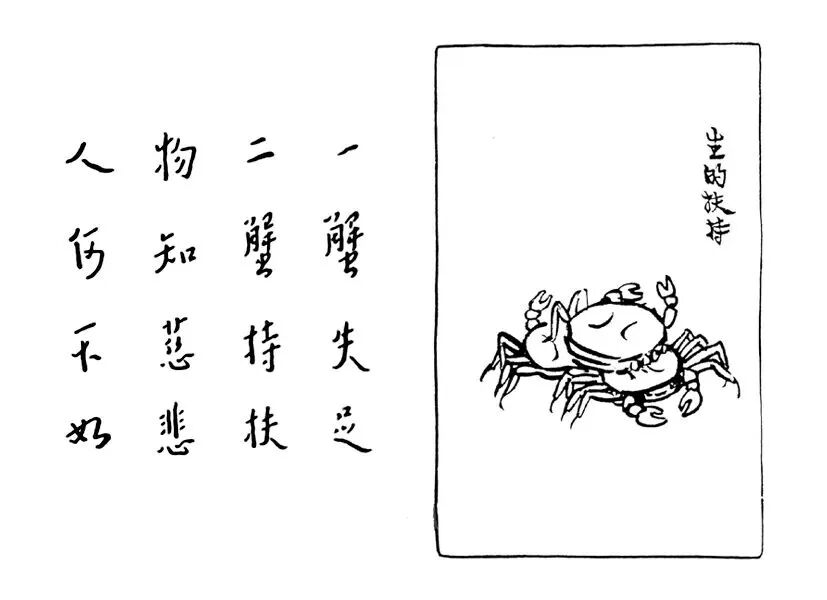 生的扶持
一蟹失足
二蟹持扶
物知慈悲
人何不如